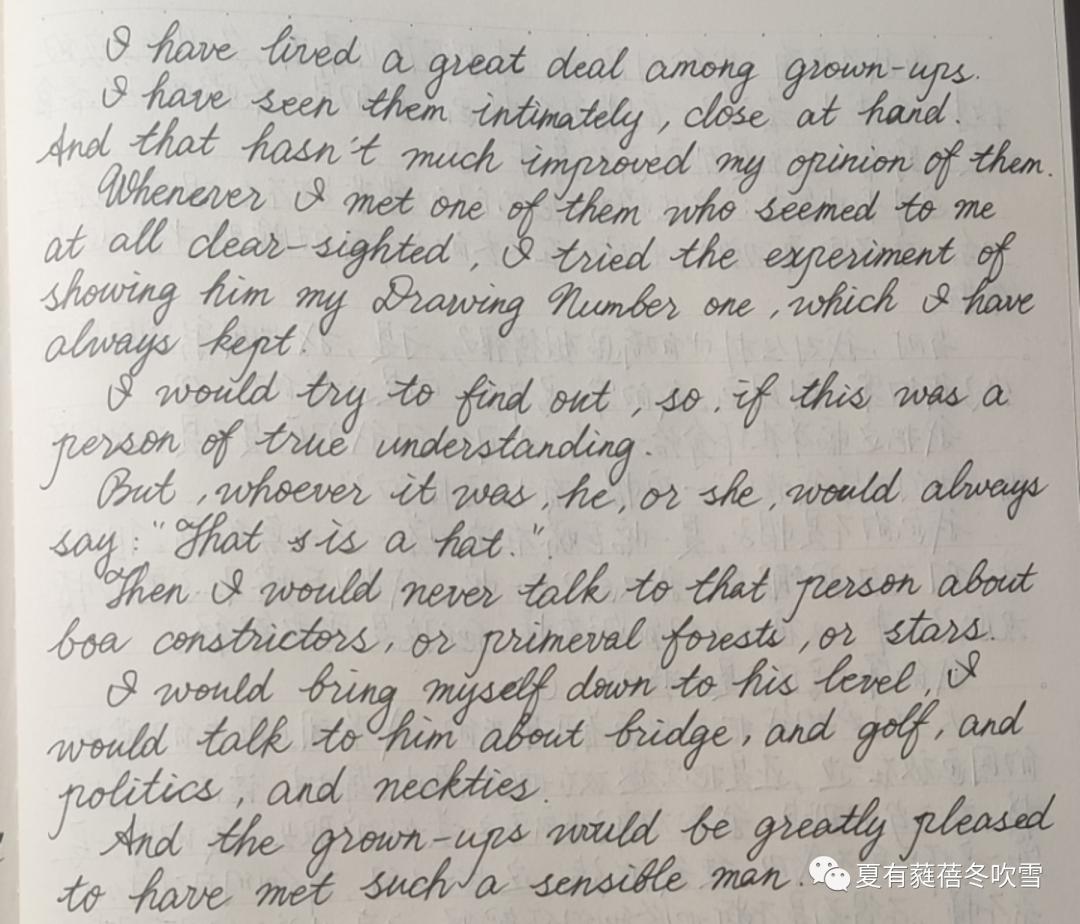 I have lived a great deal among grown-ups.
I have seen them intimately, close at hand.
And that hasn't much improved my opinion of them.
Whenever I met one of them who seemed to me
at all clear-sighted, I tried the experiment of
showing him my Drawing Number one, which I have
always kept.
I would try to find out, so, if this was a
person of true understanding.
But, whoever it was, he, or she, would always
say: "That s is a hat."
Then I would never talk to that person about
boa constrictors, or primeval forests, or stars.
I would bring myself down to his level, I
would talk to him about bridge, and golf, and
politics, and neckties.
And the grown-ups would be greatly pleased
to have met such a sensible man.
夏有蕤蓓冬吹雪